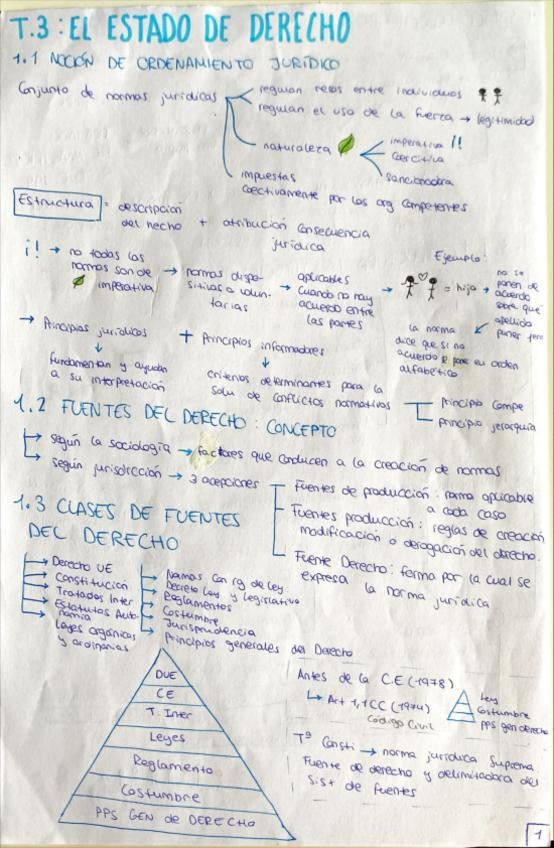 T.3: EL ESTADO DE DERECHO
1.1 NOCIÓN DE ORDENAMIENTO JURÍDICO
Conjunto de normas jurídicas
regulan relos entre individuos
regulan el uso de la fuerza → legitimidad
naturaleza
imperativa ¡!
coercitiva
sancionadora
impuestas
coectivamente por los org competentes
Estructura = descripcion del hecho + atribución consecuencia jurídica
¡! → no todas las normas son de imperativa → normas dispositivas o voluntarias → aplicables cuando no hay acuerdo entre las partes →
Ejemplo:
= hijo → no se ponen de acuerdo para que apellido poner
la norma dice que si no acuerdo se pone su orden alfabético
→ Principios jurídicos
↓
fundamentan y ayudan a su interpretación
+ Principios informadores
↓
criterios determinantes para la solu de conflictos normativos
principio compe
principio jerarquía
1.2 FUENTES DEL DERECHO: CONCEPTO
→ según la sociología → factores que conducen a la creación de normas
→ según jurisdicción → 3 acepciones
Fuentes de producción: norma aplicable a cada caso
Fuentes producción: reglas de creación modificación o derogación del derecho.
Fuente Derecho: forma por la cual se expresa la norma jurídica
1.3 CLASES DE FUENTES
DEL DERECHO
→ Derecho UE
→ Constitución
→ Tratados Inter
→ Estatutos Autonomia
→ Leyes orgánicas y ordinarias
→ Normas con rg de ley:
Decreto Ley y legislativo
→ Reglamentos
→ Costumbre
→ Jurisprudencia
→ Principios generales del Derecho
DUE
CE
T. Inter
Leyes
Reglamento
Costumbre
PPS GEN de DERECHO
Antes de la C.E (1978)
↳ Art 1,1 CC (1974)
Código Civil
Ley
Costumbre
PPS gen derecho
Tª Consti → norma jurídica suprema.
Fuente de derecho y delimitadora del
sist de fuentes
1